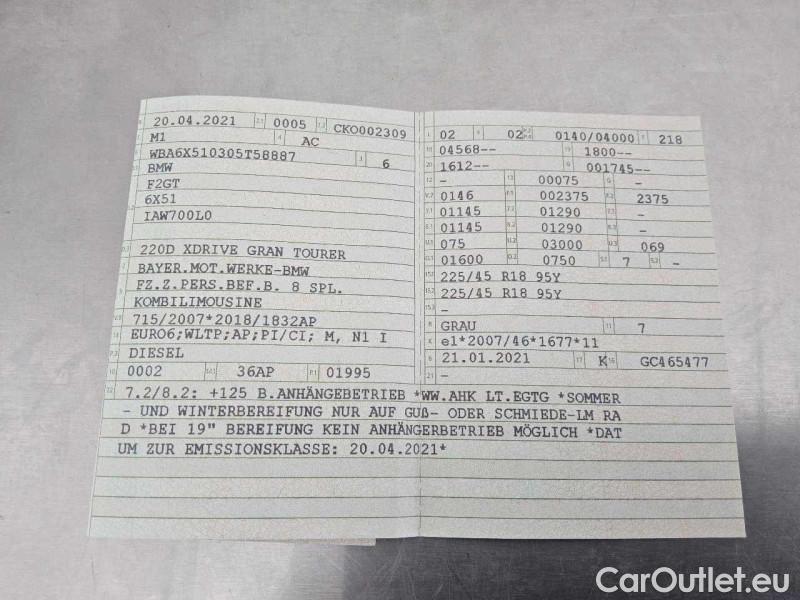 20.04.2021 2.1 0005 2.2 CKO002309
M1 4 AC
WBA6X510305T58887 3 6
BMW
F2GT
6X51
IAW700L0
220D XDRIVE GRAN TOURER
BAYER.MOT.WERKE-BMW
FZ.Z.PERS.BEF.B. 8 SPL.
KOMBILIMOUSINE
715/2007*2018/1832AP
EURO6;WLTP;AP;PI/CI; M, N1 I
DIESEL
0002 36AP P.1 01995
02 9 02 0140/04000 T 218
18 04568-- 19 1800--
20 1612-- G 001745--
12 - 13 00075 Q -
V.7 0146 F.1 002375 F.2 2375
7.1 01145 7.2 01290 7.3 -
8.1 01145 8.2 01290 8.3 -
U.1 075 U.2 03000 U.3 069
O.1 01600 O.2 0750 S.1 7 S.2 -
15.1 225/45 R18 95Y
15.2 225/45 R18 95Y
15.3 -
R GRAU 11 7
K e1*2007/46*1677*11
6 21.01.2021 17 K 16 GC465477
21 -
22 7.2/8.2: +125 B.ANHÄNGEBETRIEB *WW.AHK LT.EGTG *SOMMER
- UND WINTERBEREIFUNG NUR AUF GUß- ODER SCHMIEDE-LM RA
D *BEI 19" BEREIFUNG KEIN ANHÄNGERBETRIEB MÖGLICH *DAT
UM ZUR EMISSIONSKLASSE: 20.04.2021*
CarOutlet.eu